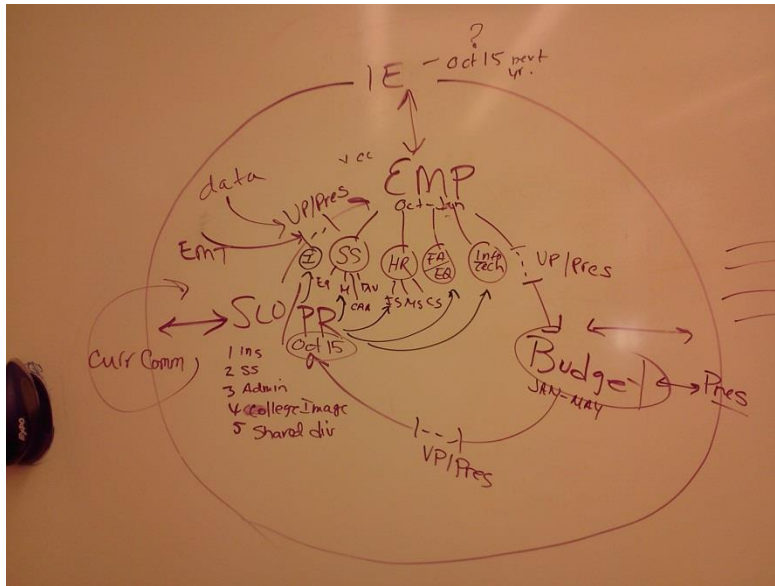 ?
IE - Oct 15 next yr.
EMP
Oct-Jan
data
VP/Pres
EMT
I
SS
HR
FA/EQ
Info Tech
VP/Pres
EQ
M
CAR
IS MS CS
SLO
PR
Oct 15
Curr Comm
1 Ins
2 SS
3 Admin
4 College Image
5 Shared div
Budget
JAN-MAY
Pres
VP/Pres
EXPO